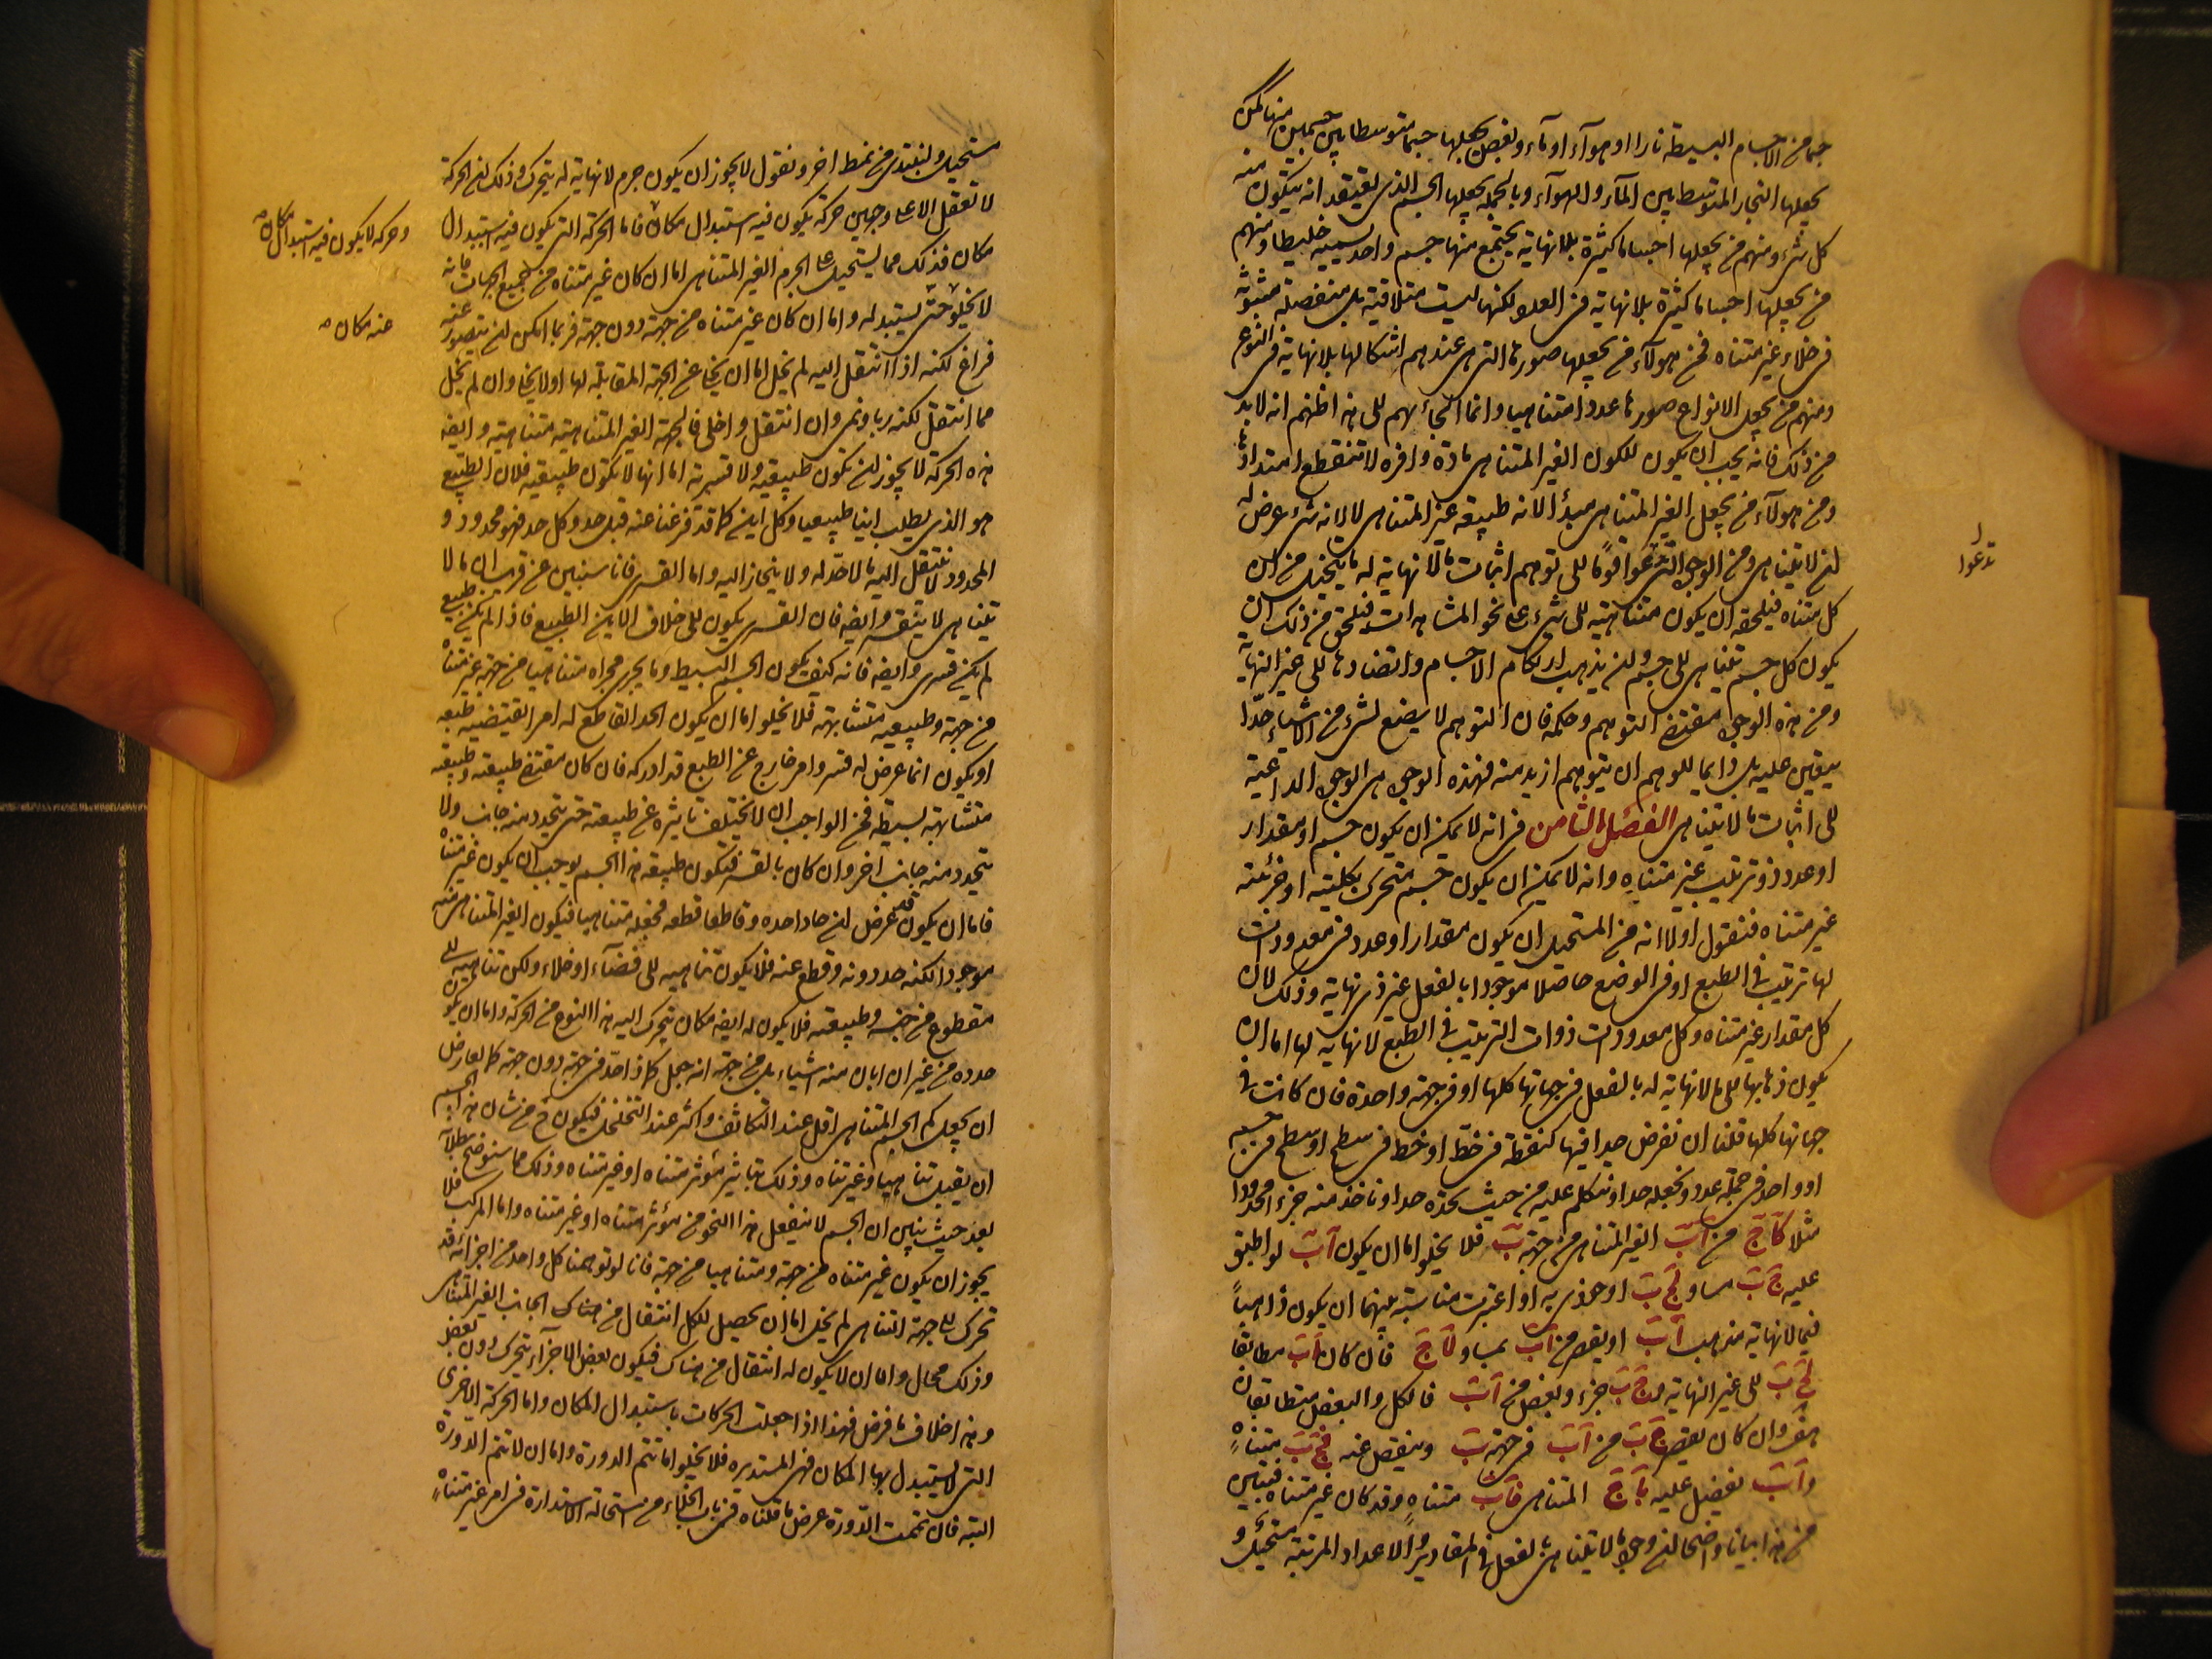 جسما من الاجسام البسيطة نارا او هوآء او مآء وبعضهم يجعلها جسما متوسطا بين جسمين منها كمن
يجعلها البخار المتوسط بين المآء والهوآء وبالجملة يجعلها الجسم الذى يعتقد انه يتكون منه
كل شئ ومنهم من يجعلها اجساما كثيرة بلا نهاية يجتمع منها جسم واحد يسميه خليطا ومنهم
من يجعلها اجساما كثيرة بلا نهاية فى العدد ولكنها ليست متلاقية بل منفصلة مبثوثة
فى خلاء غير متناه فمن هولآء من يجعلها صورها التى هى عندهم اشكالها بلا نهاية فى النوع
ومنهم من يجعل الانواع صورها عددا متناهيا وانما الجأ بهم الى هذا ظنهم انه لا بد
من ذلك فانه يجب ان يكون للكون الغير المتناهى مادة وافرة لا تنقطع امتدادها
ومن هولآء من يجعل الغير المتناهى مبدأ لانه طبيعة غير المتناهى لا لانه شئ عرض له
ان لا يتناهى ومن الوجوه التى دعوا قوما الى توهم اثبات ما لا نهاية له ما يتخيل من ان
كل متناه فيلحقه ان يكون متناهيته الى شئ على نحو المشاهدات فيلحق من ذلك ان
يكون كل جسم يتناهى الى جسم وان يذهب ارتكام الاجسام وانتضادها الى غير النهاية
ومن هذه الوجوه مقتضى التوهم وحكمه فان التوهم لا يضع لشئ من الاشياء حدّا
يتعين عليه بل دايما للوهم ان يتوهم ازيد منه فهذه الوجوه هى الوجوه الداعية
الى اثبات ما لا يتناهى الفصل الثامن فى انه لا يمكن ان يكون جسم او مقدار
او عدد ذو ترتيب غير متناه وانه لا يمكن ان يكون جسم متحرك بكليته او جزئيته
غير متناه فنقول اولا انه من المستحيل ان يكون مقدار او عدد فى معدودات
لها ترتيب فى الطبع او فى الوضع حاصلا موجودا بالفعل غير ذى نهاية وذلك لان
كل مقدار غير متناه وكل معدودات ذوات الترتيب فى الطبع لا نهاية لها اما ان
يكون ذهابها الى ما لا نهاية له بالفعل فى جهاتها كلها او فى جهة واحدة فان كانت فى
جهاتها كلها فلنا ان نفرض حدا فيها كنقطة فى خط او خط فى سطح او سطح فى جسم
او واحد فى جملة عدد ونجعله حدا ونتكلم عليه من حيث نحده حدا وناخذ منه جزءا محدودا
مثلا كآج من آب الغير المتناهى من جهة ب فلا يخلو اما ان يكون آب لو اطبق
عليه ج ب مساو لج ب او حوذى به او اعتبرت مناسبة بينهما ان يكون ذاهبا
فيما لا نهاية مذهب آب او يقصر من آب بمساو لآج فان كان آب مطابقا
لج ب الى غير النهاية وج ب جزء وبعض من آب فالكل والبعض متطابقان
هف وان كان يقصر ج ب من آب فى جهة ب وينقص عنه فج ب متناه
وآب يفضل عليه بآج المتناهى فآب متناه وقد كان غير متناه فتبين
من هذا بيانا واضحا ان وجود ما لا يتناهى بالفعل فى المقادير والاعداد المرتبة مستحيل و
تدعوا
مستحيل ولنبتدى من نمط اخر ونقول لا يجوز ان يكون جرم لا نهاية له يتحرك وذلك لان الحركة
لا تعقل الا على وجهين حركة يكون فيه استبدال مكان فاما الحركة التى يكون فيه استبدال
مكان فذلك مما يستحيل على الجرم الغير المتناهى اما ان كان غير متناه من جميع الجهات فانه
لا يخلو عنه حتى يستبدله واما ان كان غير متناه من جهة دون جهة فربما امكن ان يتصور عنه
فراغ لكنه اذا انتقل اليه لم يخل اما ان يخلى عن الجهة المقابلة لها او لا يخلى وان لم يخل
مما انتقل لكنه ربا ونمى وان انتقل واخلى فالجهة الغير المتناهية متناهية وايضه
هذه الحركة لا يجوز ان تكون طبيعية ولا قسرية اما انها لا يكون طبيعية فلان الطبيع
هو الذى يطلب اينا طبيعيا وكل اين كما قد فرغنا عنه قبل حد وكل حد فهو محدود و
المحدود لا ينتقل اليه ما لا حدّ له ولا ينحاز اليه واما القسرى فانا سنبين عن قريب ان ما لا
يتناهى لا ينقسر وايضه فان القسرى يكون الى خلاف الاين الطبيع فاذا لم يكن طبيع
لم يكن قسرى وايضه فانه كيف يكون الجسم البسيط وما يجرى مجراه متناهيا من جهة غير متناه
من جهة وطبيعيه متشابهة فلا يخلو اما ان يكون الحد القاطع له امرا يقتضيه طبعه
او يكون انما عرض له قسر وامر خارج عن الطبع قد ادركه فان كان مقتضى طبيعته وطبيعته
متشابهة بسيطة فمن الواجب ان لا يختلف تاثيره عن طبيعته حتى يتحدد منه جانب ولا
يتحدد منه جانب اخر وان كان بالقسر فتكون طبيعة هذا الجسم يوجب ان يكون غير متناه
فاما ان يكون قد عرض ان حادا حده وقاطعا قطعه فجعله متناهيا فيكون الغير المتناهى منه
موجودا لكنه حد دونه وقطع عنه فلا يكون تناهيه الى فضآء او خلاء ولكن تناهيه الى
مقطوع من جنسه وطبيعته فلا يكون له ايضه مكان يتحرك اليه هذا النوع من الحركة واما ان يكون
حدده من غير ان ابان منه اشياء بل من جهة انه جعل كما ذا حدّ فى جهة دون جهة كما يعارض
ان يجعل كم الجسم المتناهى اقل عند التكاثف واكثر عند التخلخل فيكون ح من شان هذا الجسم
ان يقبل تناهيا وغير تناه وذلك بتاثير مؤثر متناه او غير متناه وذلك مما سنوضح بطلانه
بعد حيث نبين ان الجسم لا ينفعل هذا النحو من مؤثر متناه او غير متناه واما المركب فلا
يجوز ان يكون غير متناه من جهة ومتناهيا من جهة فانا لو توهمنا كل واحد من اجزائه قد
تحرك الى جهة التناهى لم يخل اما ان يحصل للكل انتقال من هناك الجانب الغير المتناهى
وذلك محال واما ان لا يكون له انتقال من هناك فيكون بعض الاجزآء يتحرك دون بعض
وهذا خلاف ما فرض فهذا اذا جعلت الحركات باستبدال المكان واما الحركة الاخرى
التى لا يستبدل بها المكان فهى المستديره فلا يخلو اما تتم الدورة واما ان لا تتم الدورة
البتة فان تممت الدّورة عرض ما قلناه فى باب الخلاء من استحالة الاستدارة فى امر غير متناه
وحركه لا يكون فيه استبدال مكان
عنه مكان